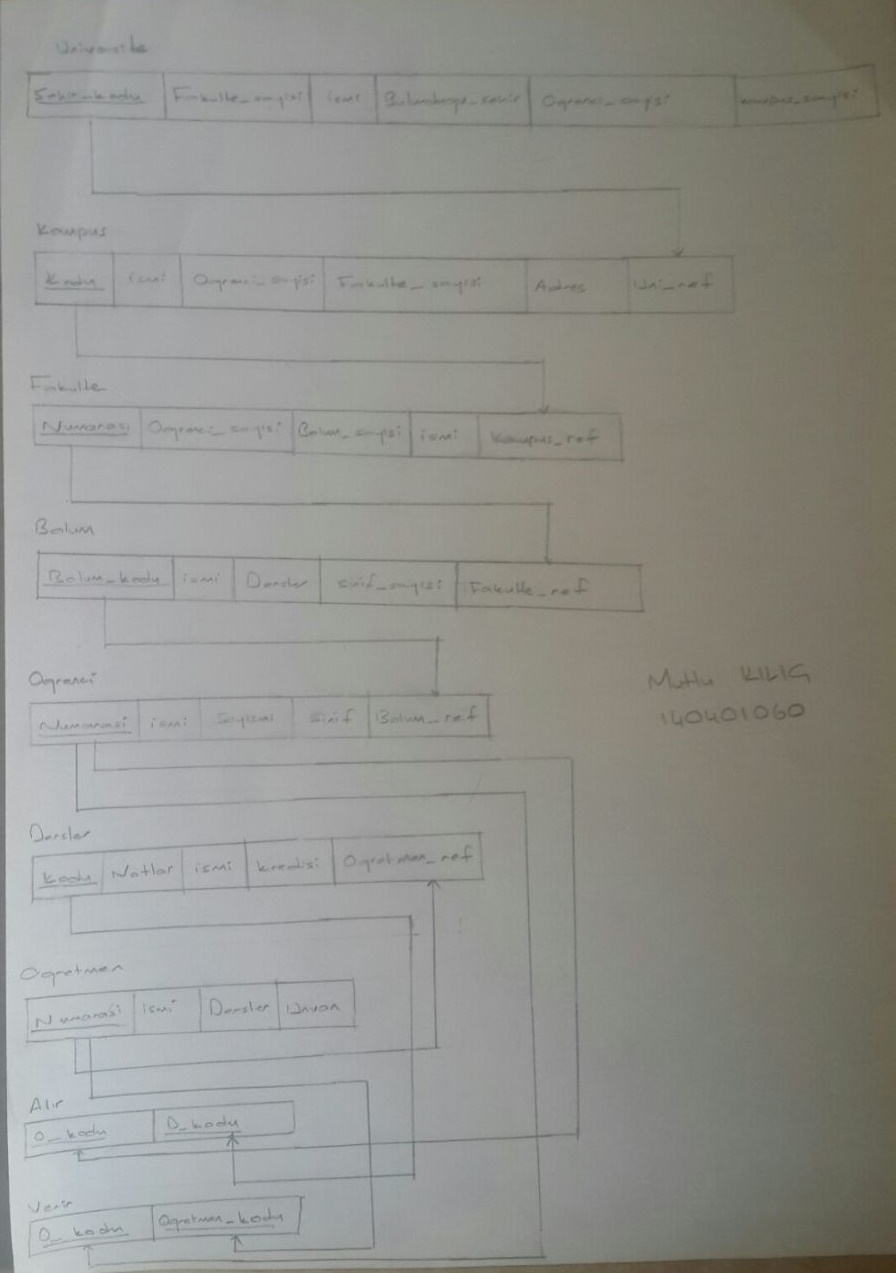 Universite
Sehir_kodu Fakulte_sayisi ismi Bulundugu_sehir Ogrenci_sayisi kampus_sayisi
Kampus
Kodu ismi Ogrenci_sayisi Fakulte_sayisi Adres Uni_ref
Fakulte
Numarasi Ogrenci_sayisi Bolum_sayisi ismi Kampus_ref
Bolum
Bolum_kodu ismi Dersler sinif_sayisi Fakulte_ref
Ogrenci
Numarasi ismi Soyismi sinif Bolum_ref
Mutlu KILIÇ
140401060
Dersler
kodu Notlar ismi kredisi Ogretmen_ref
Ogretmen
Numarasi ismi Dersler Unvan
Alir
O_kodu D_kodu
Verir
O_kodu Ogretmen_kodu